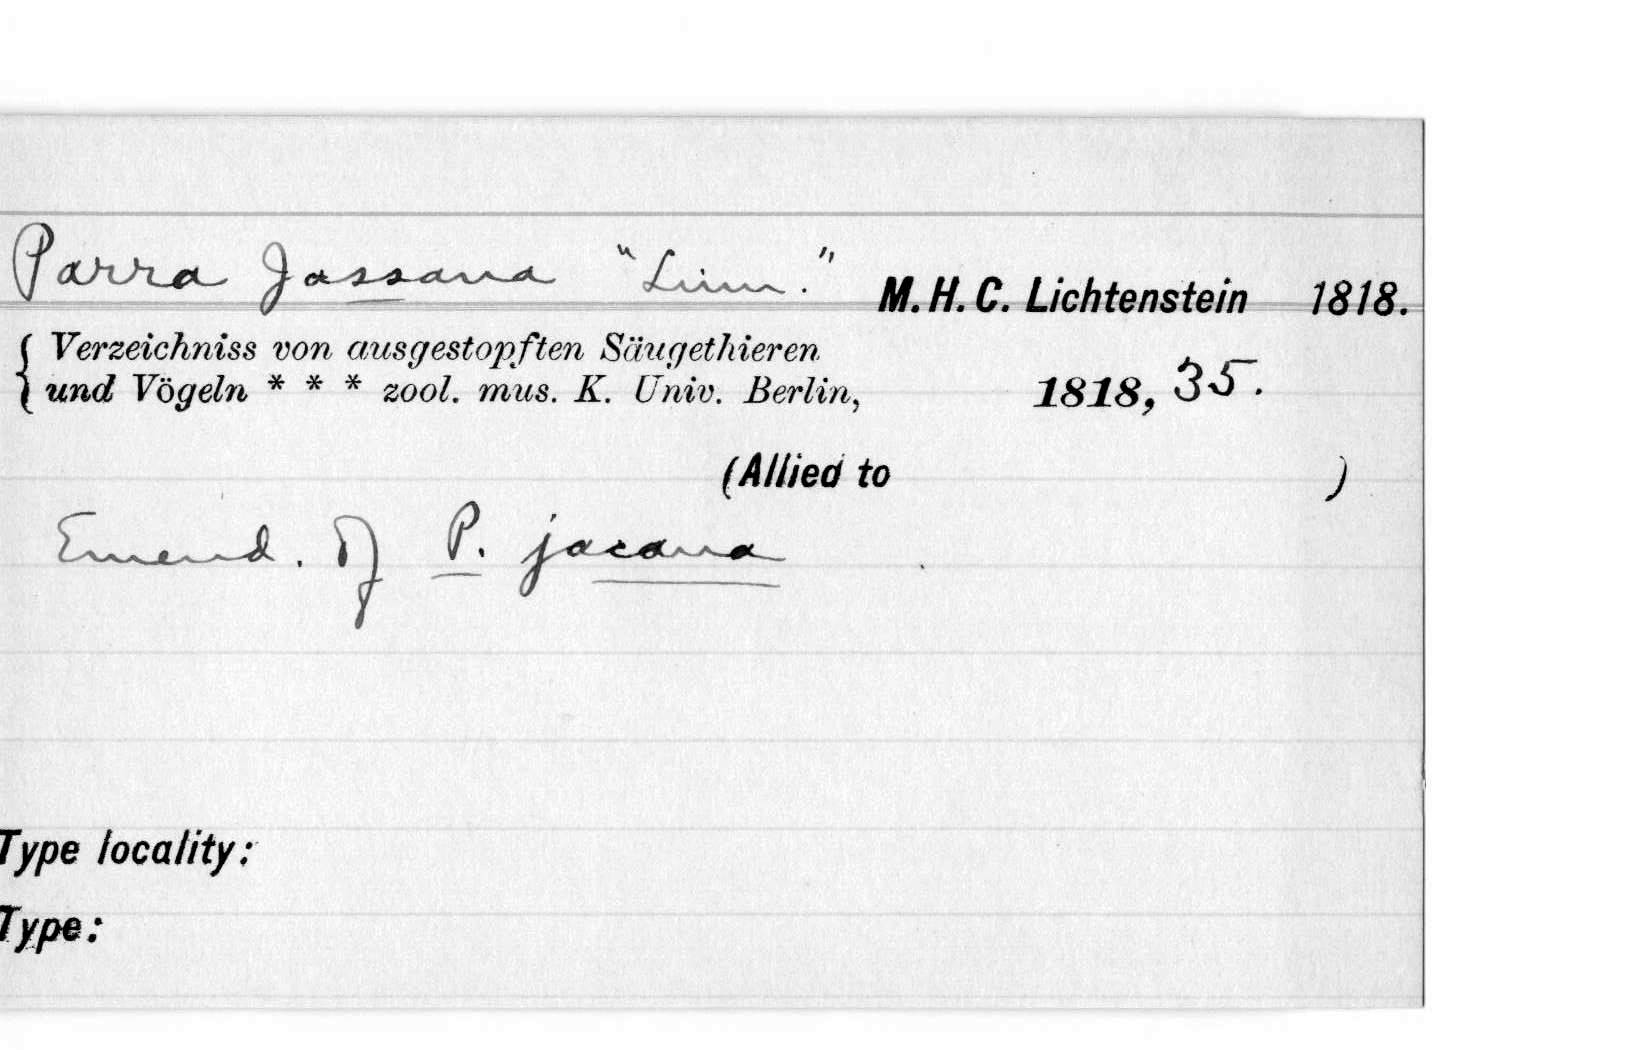 Parra Jassana "Linn." M. H. C. Lichtenstein 1818.
{ Verzeichniss von ausgestopften Säugethieren
und Vögeln * * * zool. mus. K. Univ. Berlin, 1818, 35.
(Allied to )
Emend. of P. jacana
Type locality:
Type: